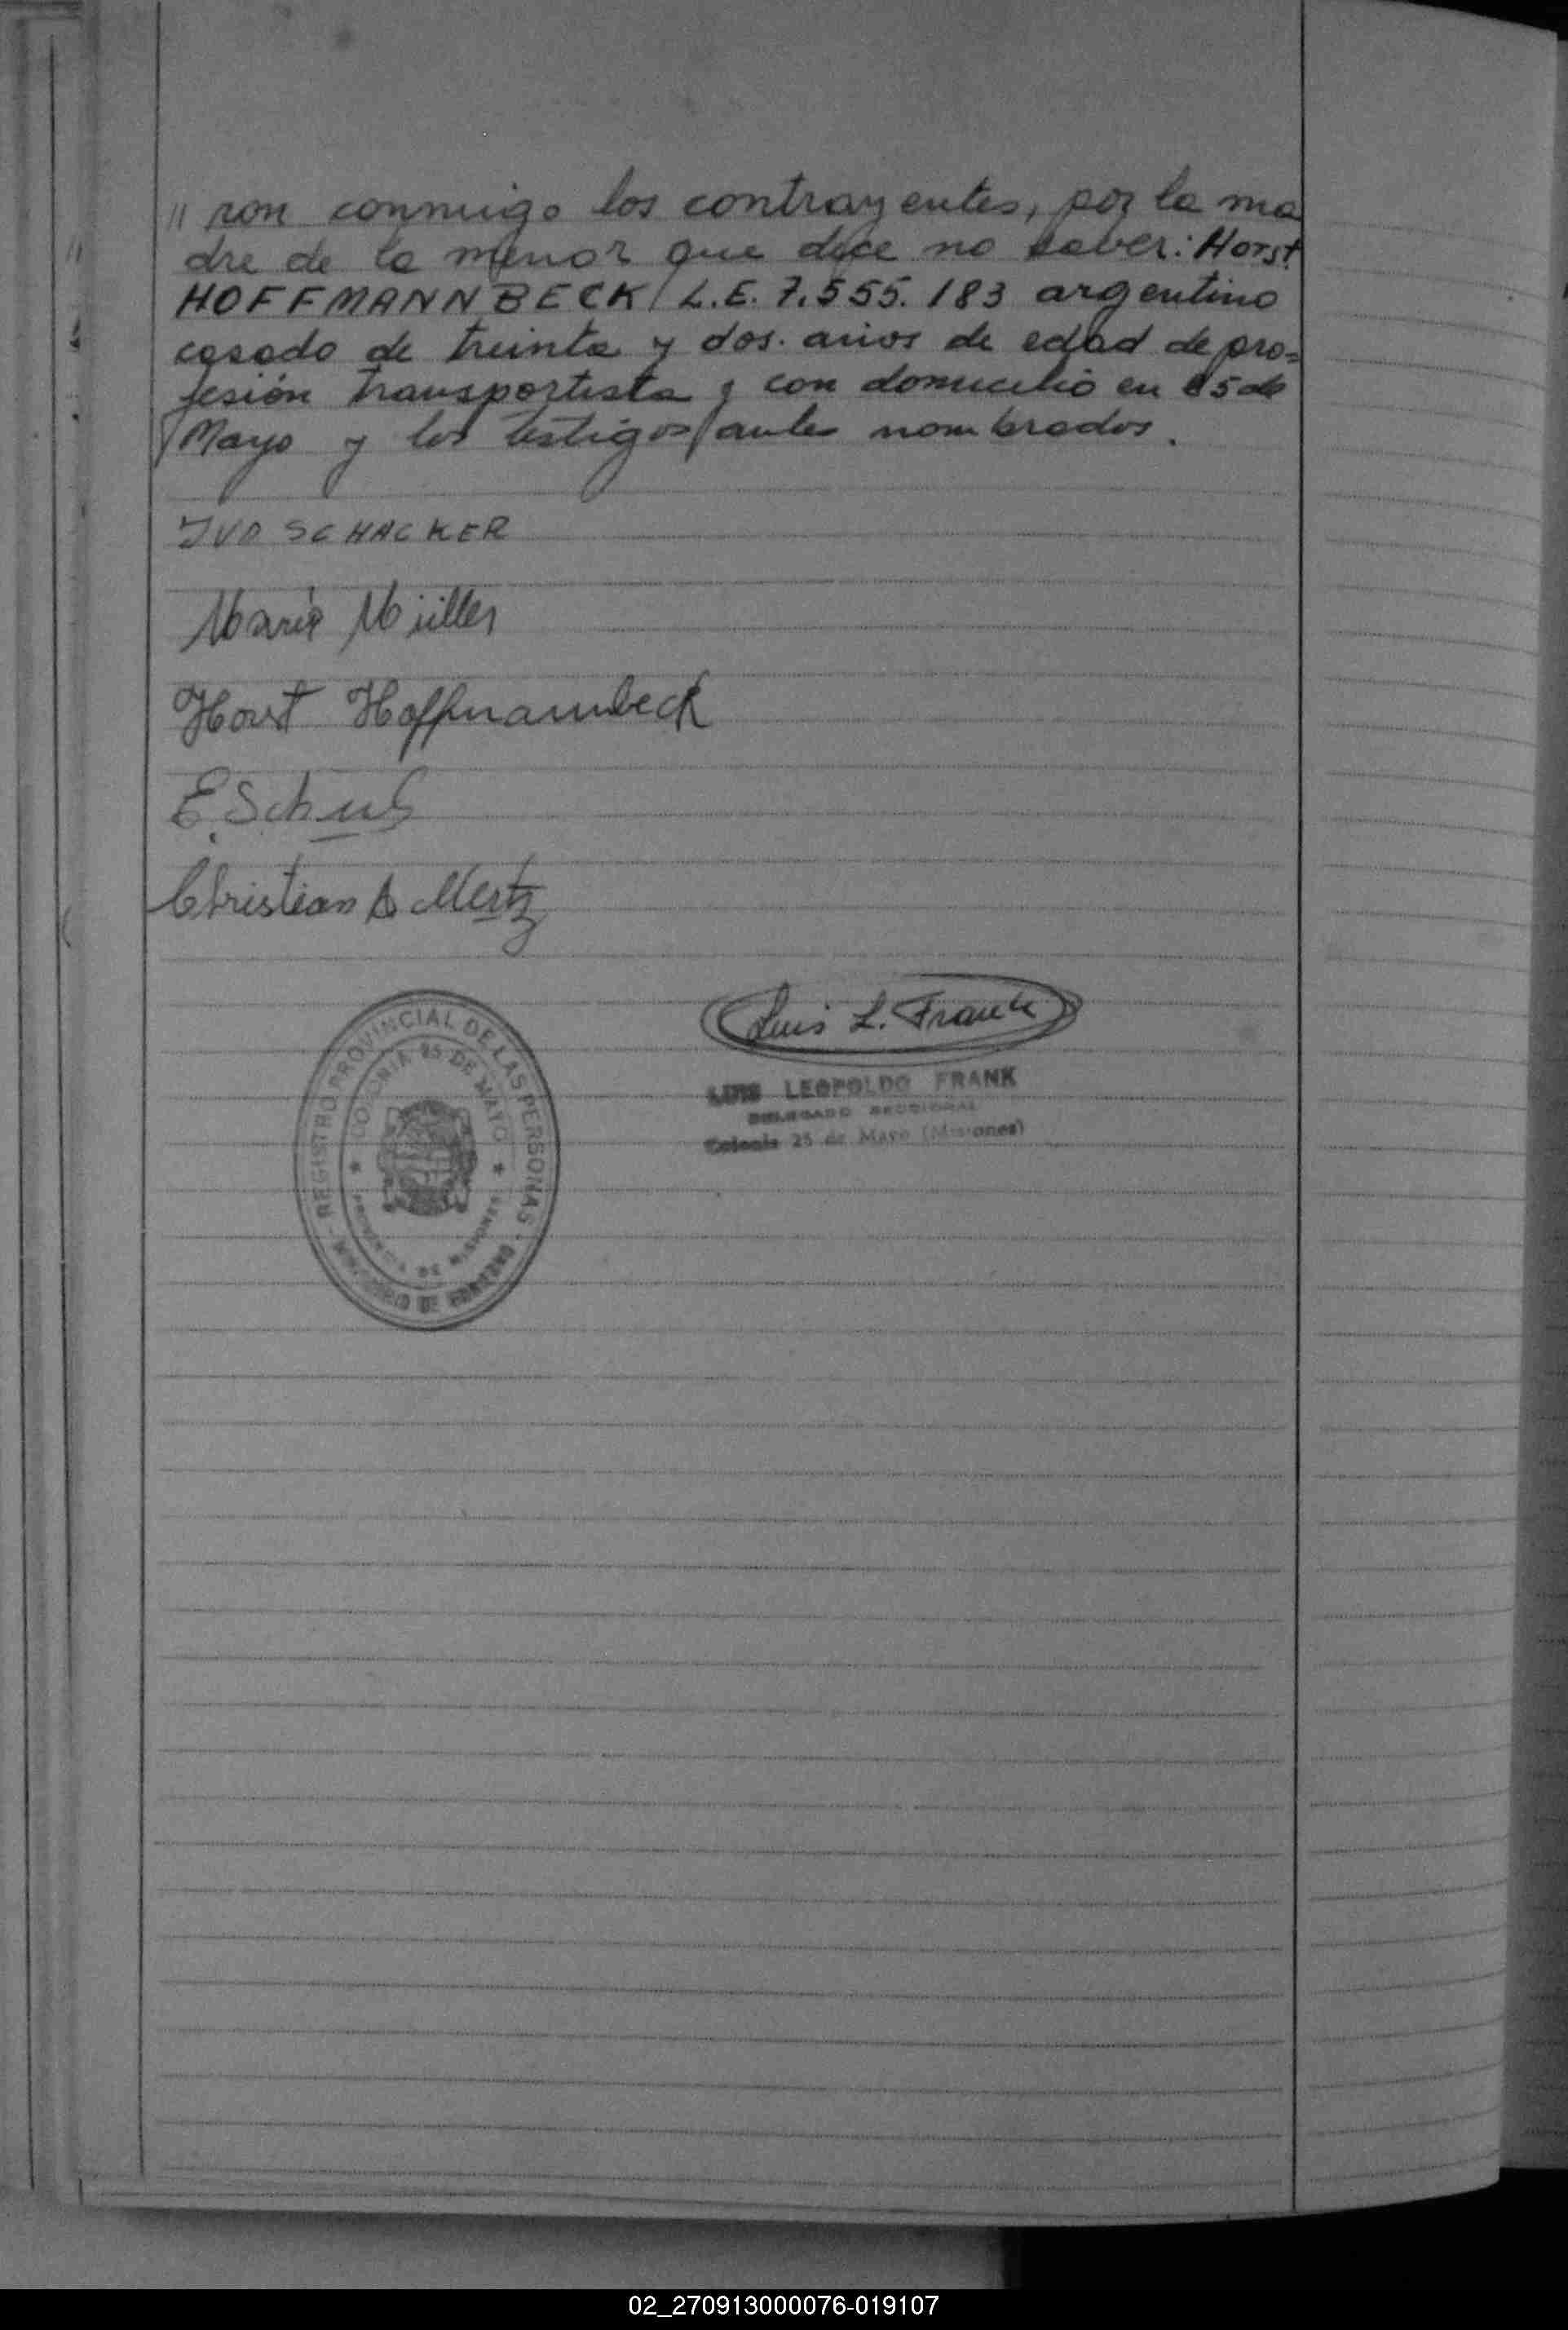 " ron conmigo los contrayentes, por la ma
dre de la menor que dice no saver: Horst
HOFFMANNBECK L.E. 7.555.183 argentino
casado de treinta y dos. años de edad de pro=
fesión transportista y con domicilio en 25 de
Mayo y los testigos antes nombrados.
IVO SCHACKER
Maria Müller
Horst Hoffmannbeck
E. Schu
Christian A Mertz
Luis L. Frank
LUIS LEOPOLDO FRANK
DELEGADO SECCIONAL
Colonia 25 de Mayo (Misiones)
REGISTRO PROVINCIAL DE LAS PERSONAS
COLONIA 25 DE MAYO
PROVINCIA DE MISIONES
MINISTERIO DE GOBIERNO
02_270913000076-019107